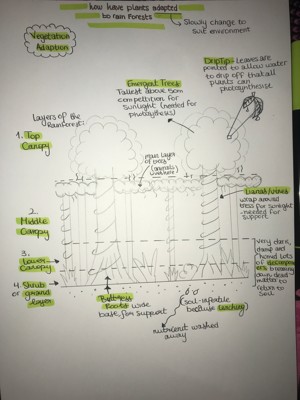 how have plants adapted
to rain Forests
Slowly change to
suit environment
Vegetation
Adaption
Emergent Trees
Tallest above 50m
competition for
sunlight (needed for
photosythesis)
DripTip- leaves are
pointed to allow water
to drip off that all
plants can
photosynthesise
Layers of the
Rainforest:
1. Top
Canopy
main layer
of trees
(animals
live here)
Lianas/vines
wrap around
trees for sunlight
-needed for
support
2.
Middle
Canopy
3.
Lower
Canopy
4. Shrub
or ground
layer
very dark,
damp and
humid lots
of decompos
ers breaking
down dead
matter to
return to
soil
Buttress
Roots wide
base for support
(soil-infertile
because leaching)
nutrient washed
away